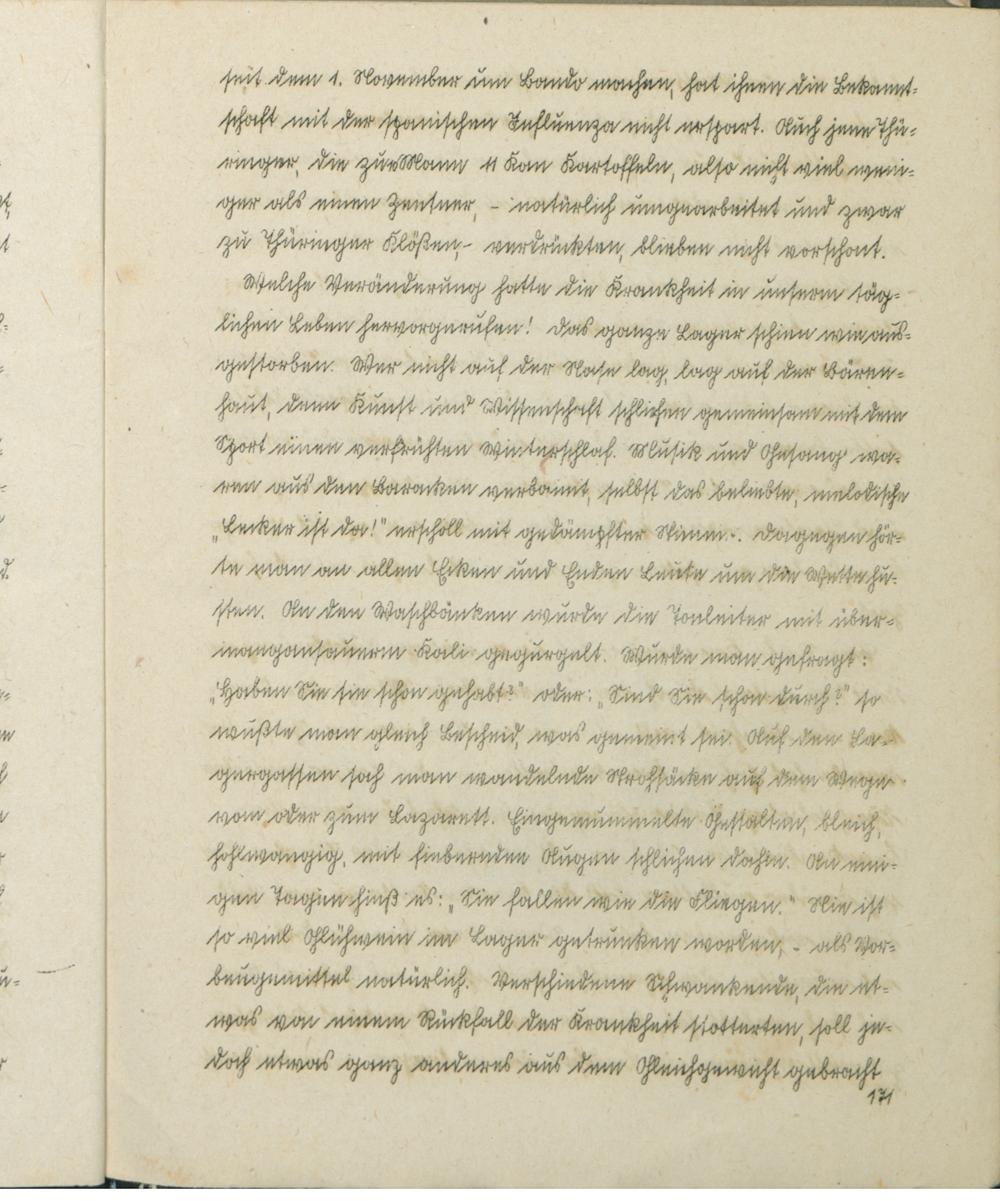 seit dem 1. November um Bando machen, hat ihnen die Bekannt-
schaft mit der spanischen Influenza nicht erspart. Auch jene Thü-
ringer, die zu 8 Mann 11 Kan Kartoffeln, also nicht viel weni-
ger als einen Zentner, - natürlich umgearbeitet und zwar
zu Thüringer Klößen, - verdrückten, blieben nicht verschont.
Welche Veränderung hatte die Krankheit in unserm täg-
lichen Leben hervorgerufen! Das ganze Lager schien wie aus-
gestorben. Wer nicht auf der Nase lag, lag auf der Bären-
haut, denn Kunst und Wissenschaft schliefen gemeinsam mit dem
Sport einen verfrühten Winterschlaf. Musik und Gesang wa-
ren aus den Baracken verbannt, selbst das beliebte, melodische
„Lecker ist da!" erscholl mit gedämpfter Stimme. Dagegen hör-
te man an allen Ecken und Enden Leute um die Wette hu-
sten. An den Waschbänken wurde die Tonleiter mit über-
mangansauerm Kali gegurgelt. Wurde man gefragt:
„Haben Sie sie schon gehabt?" oder: „Sind Sie schon durch?" so
wußte man gleich Bescheid, was gemeint sei. Auf den La-
gergassen sah man wandelnde Strohsäcke auf dem Wege
vom oder zum Lazarett. Eingemummelte Gestalten, bleich,
hohlwangig, mit fiebernden Augen schlichen dahin. An eini-
gen Tagen hieß es: „Sie fallen wie die Fliegen." Nie ist
so viel Glühwein im Lager getrunken worden, - als Vor-
beugemittel natürlich. Verschiedene Schwankende, die et-
was von einem Rückfall der Krankheit stotterten, soll je-
doch etwas ganz anderes aus dem Gleichgewicht gebracht
171